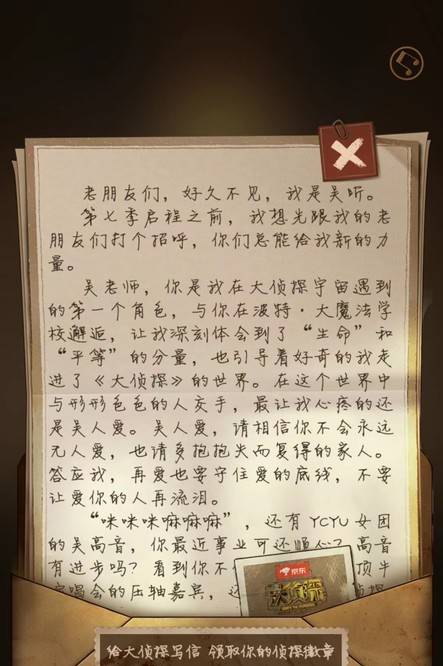 老朋友们，好久不见，我是吴昕。
第七季启程之前，我想先跟我的老
朋友们打个招呼，你们总能给我新的力
量。
吴老师，你是我在大侦探宇宙遇到
的第一个角色，与你在波特·大魔法学
校邂逅，让我深刻体会到了“生命”和
“平等”的分量，也引导着好奇的我走
进了《大侦探》的世界。在这个世界中
与形形色色的人交手，最让我心疼的还
是吴人爱。吴人爱，请相信你不会永远
无人爱，也请多抱抱失而复得的家人。
答应我，再爱也要守住爱的底线，不要
让爱你的人再流泪。
“咪咪咪嘛嘛嘛”，还有YCYU女团
的吴高音，你最近事业可还顺心？高音
有进步吗？看到你不
唱会的压轴嘉宾，还
顶牛
京东
大侦探
给大侦探写信 领取你的侦探徽章